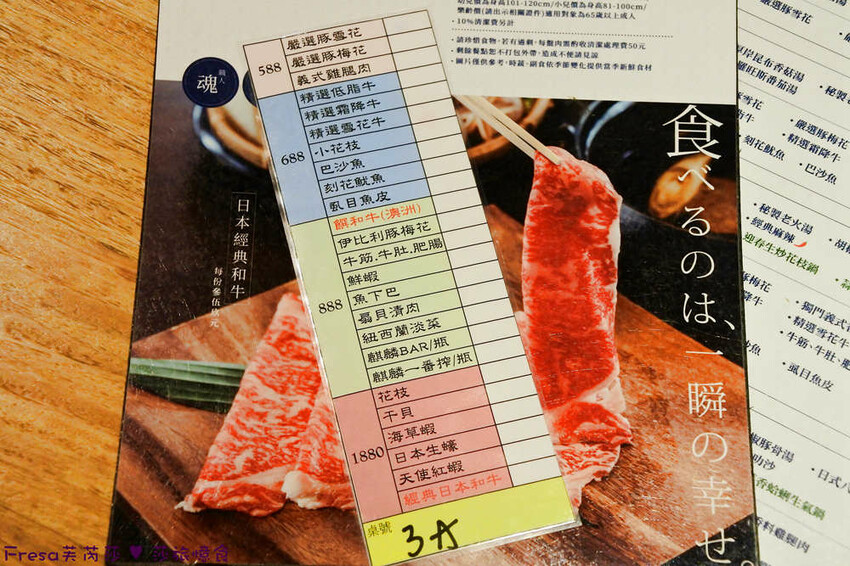 幼兒價為身高101-120cm/小兒價為身高81-100cm/
樂齡價(請出示相關證件)適用對象為65歲以上成人
·10%清潔費另計
·請珍惜食物,若有過剩,每盤肉酌收清潔處理費50元
·剩餘餐點恕不打包外帶,造成不便請見諒
·圖片僅供參考,時蔬、副食依季節變化提供當季新鮮食材
職人
魂
日本經典和牛
每份參伍拾元
588
嚴選豚雪花
嚴選豚梅花
義式雞腿肉
688
精選低脂牛
精選霜降牛
精選雪花牛
小花枝
巴沙魚
刻花魷魚
虱目魚皮
888
饌和牛(澳洲)
伊比利豚梅花
牛筋.牛肚.肥腸
鮮蝦
魚下巴
扇貝清肉
紐西蘭淡菜
麒麟BAR/瓶
麒麟一番搾/瓶
1880
花枝
干貝
海草蝦
日本生蠔
天使紅蝦
經典日本和牛
桌號
3A
食べるのは、一瞬の幸せ。
豚雪花
·嚴選豚梅花
·精選霜降牛
·刻花魷魚
·巴沙魚
·秘製老火湯
·經典麻辣
迎春生炒花枝鍋
豚梅花
·獨門義式
·精選雪花牛
·牛筋.牛肚.肥
·虱目魚皮
椒豚骨湯
·日式
香蛤蜊生氣鍋
Fresa芙芮